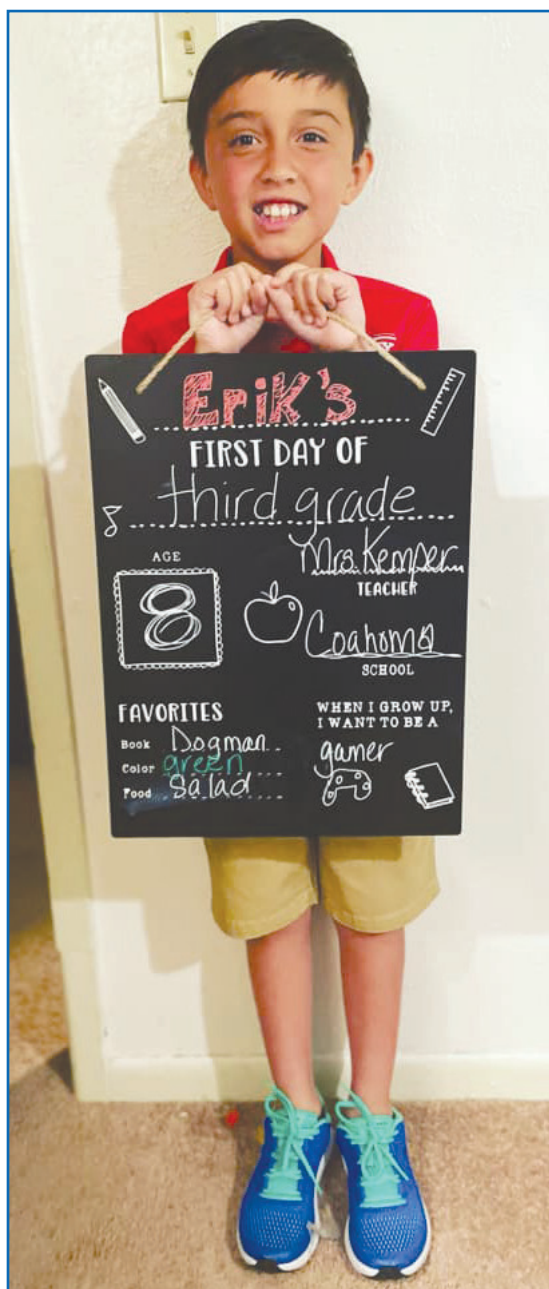 Erik's
FIRST DAY OF
third grade
8
AGE
8
Mrs. Kemper
TEACHER
Coahoma
SCHOOL
FAVORITES
Book Dogman
Color green
Food Salad
WHEN I GROW UP,
I WANT TO BE A
gamer